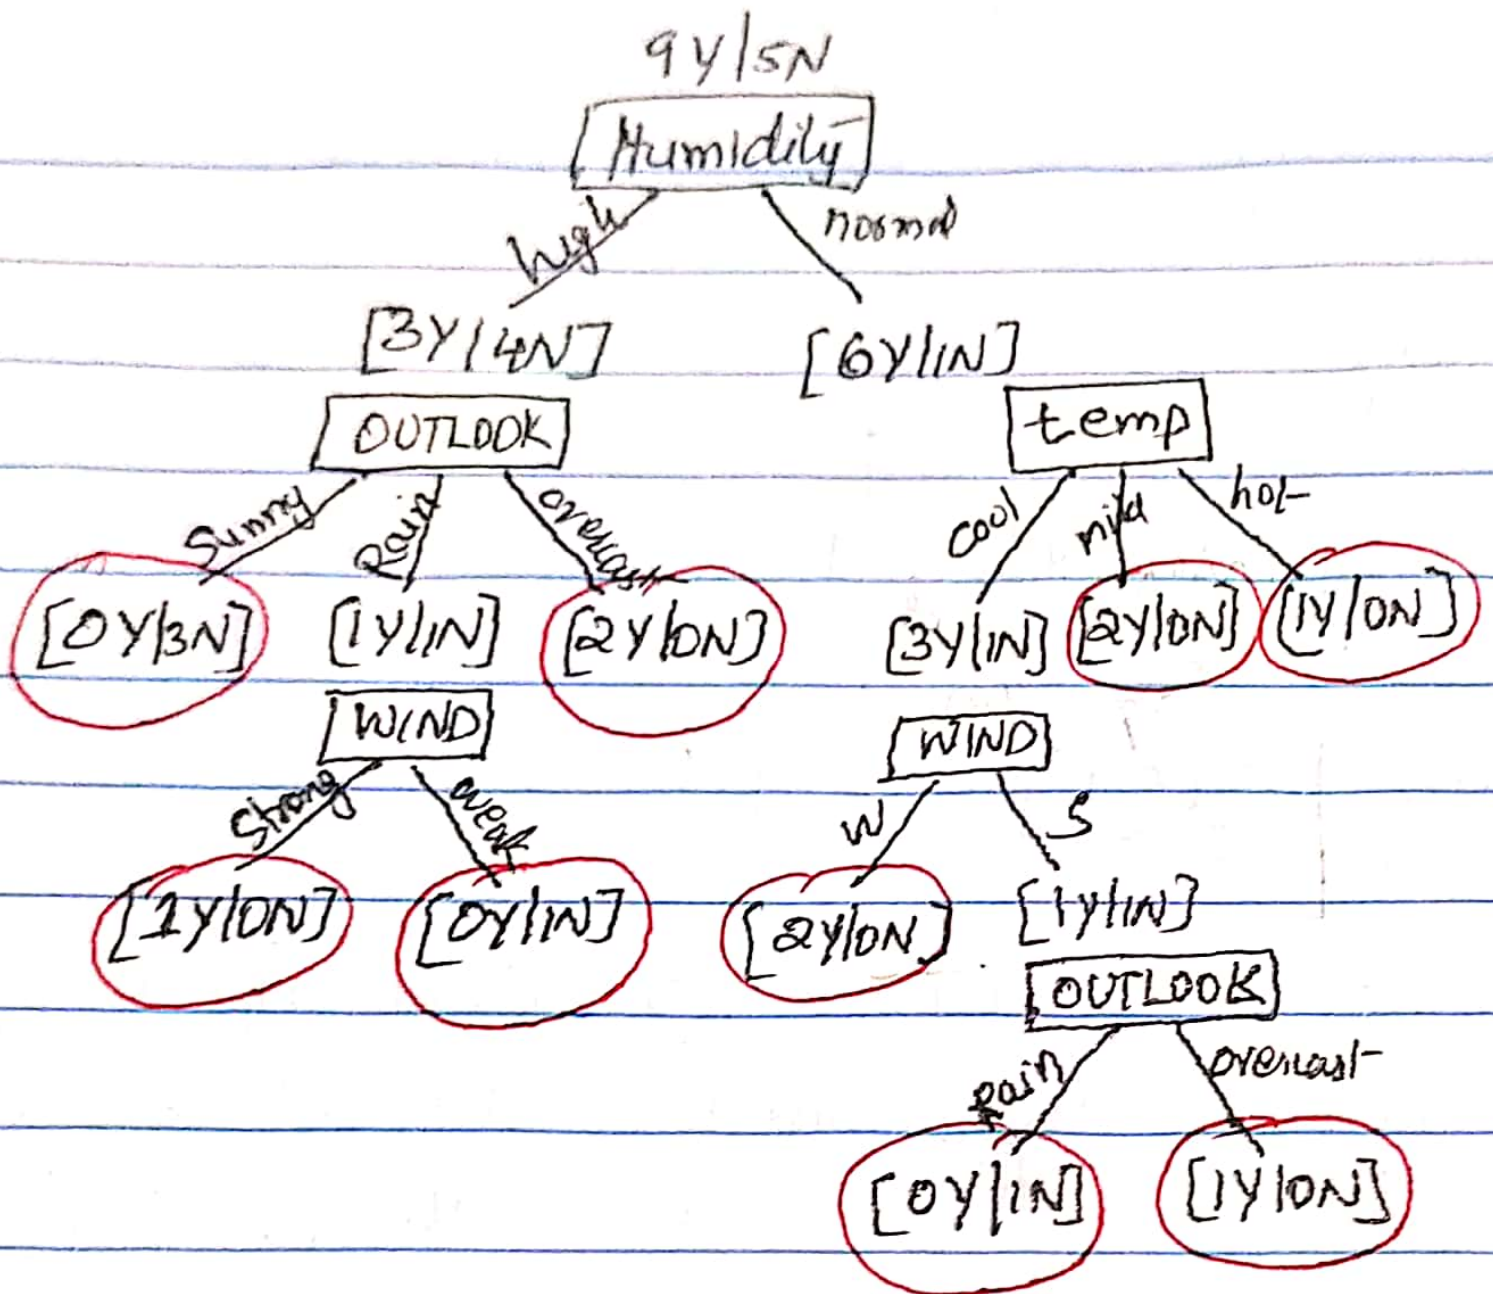 9Y|5N
Humidity
high normal
[3Y|4N] [6Y|1N]
OUTLOOK temp
Sunny Rain overcast cool mild hot
[0Y|3N] [1Y|1N] [2Y|0N] [3Y|1N] [2Y|0N] [1Y|0N]
WIND WIND
Strong weak W S
[1Y|0N] [0Y|1N] [2Y|0N] [1Y|1N]
OUTLOOK
Rain overcast
[0Y|1N] [1Y|0N]